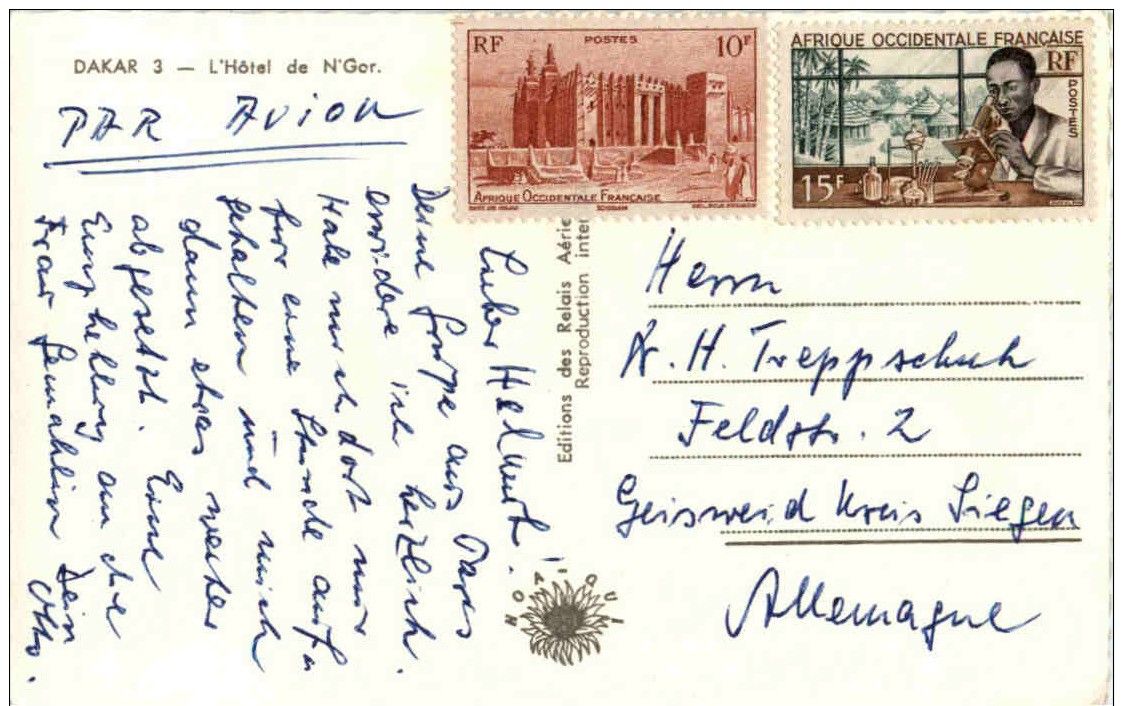 DAKAR 3 — L'Hôtel de N'Gor.
PAR AVION
RF POSTES 10F
AFRIQUE OCCIDENTALE FRANÇAISE
AFRIQUE OCCIDENTALE FRANÇAISE
RF
POSTES
15F
Lieber Helmut!
Deine Grüße aus Paris
erwidere ich herzlich.
Habe mich dort nur
für eine Stunde aufge
halten und mich
dann etwas weiter
abgesetzt. Eine
Empfehlung an die
Frau Gemahlin Dein
Otto.
Editions des Relais Aérie
Reproduction inter
HOA QUI
Herrn
H. Treppschuh
Feldstr. 2
Geisweid Kreis Siegen
Allemagne